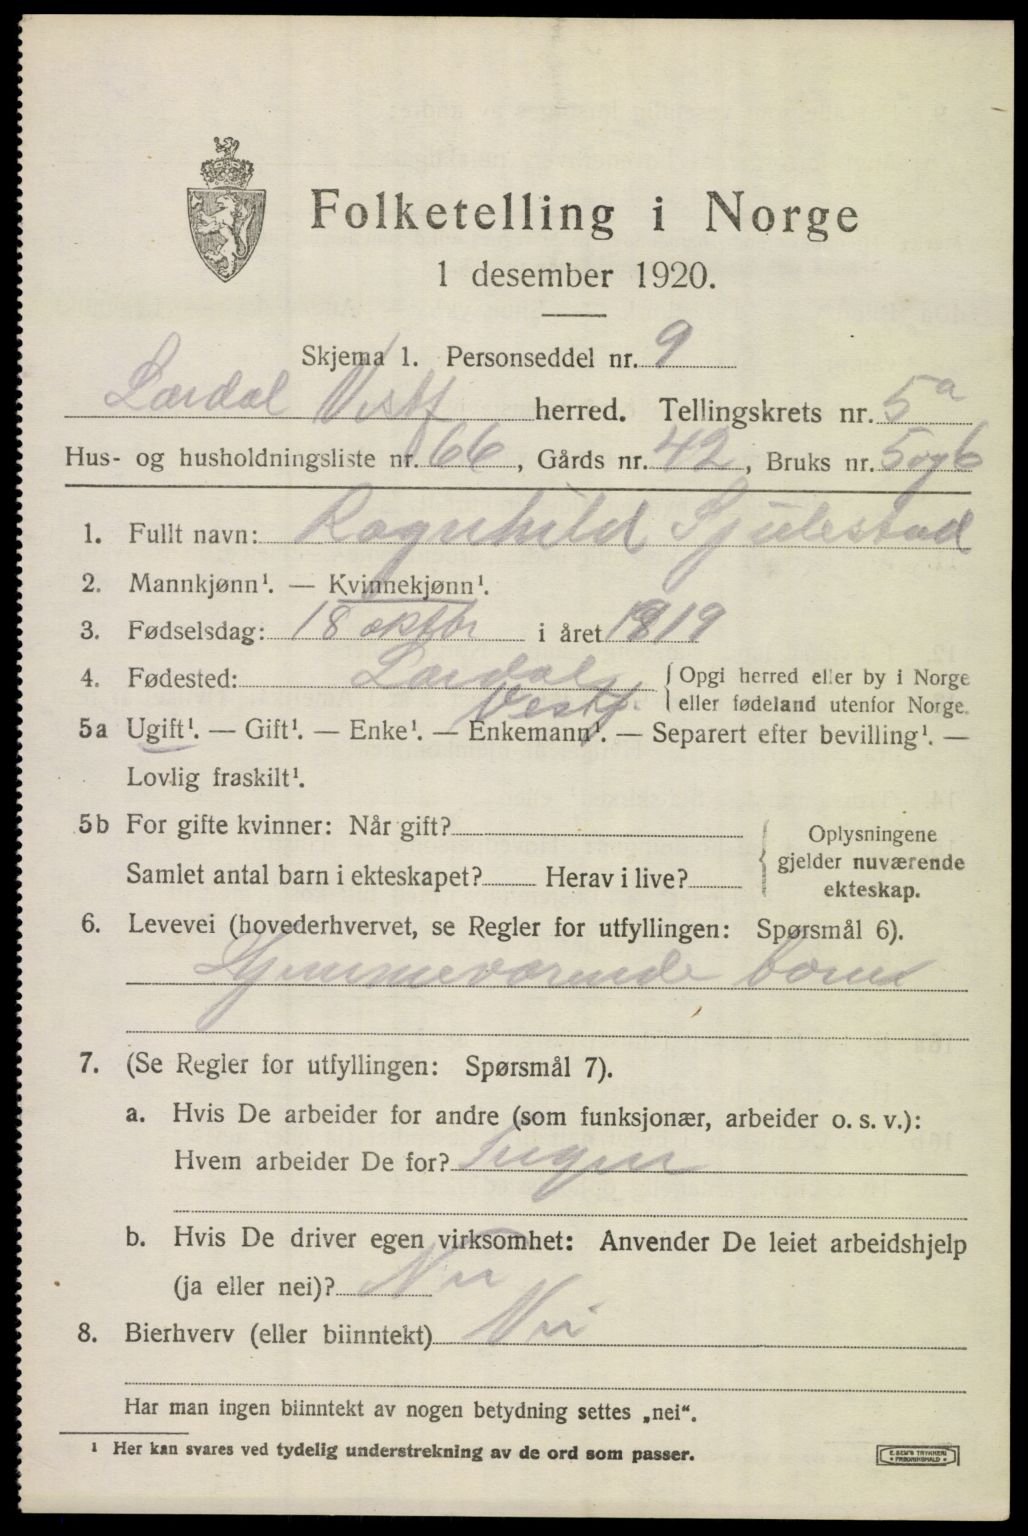 Folketelling i Norge
1 desember 1920.
Skjema 1. Personseddel nr. 9
Lardal Vestf herred. Tellingskrets nr. 5a
Hus- og husholdningsliste nr. 66, Gårds nr. 42, Bruks nr. 5og6
1. Fullt navn: Ragnhild Sjulestad
2. Mannkjønn¹. — Kvinnekjønn¹.
3. Fødselsdag: 18 oktbr i året 1919
4. Fødested: Lardal { Opgi herred eller by i Norge
Vestf. eller fødeland utenfor Norge.
5a Ugift¹. — Gift¹. — Enke¹. — Enkemann¹. — Separert efter bevilling¹. —
Lovlig fraskilt¹.
5b For gifte kvinner: Når gift?
Samlet antal barn i ekteskapet? Herav i live?
Oplysningene
gjelder nuværende
ekteskap.
6. Levevei (hovederhvervet, se Regler for utfyllingen: Spørsmål 6).
Hjemmeværende barn
7. (Se Regler for utfyllingen: Spørsmål 7).
a. Hvis De arbeider for andre (som funksjonær, arbeider o. s. v.):
Hvem arbeider De for? Ingen
b. Hvis De driver egen virksomhet: Anvender De leiet arbeidshjelp
(ja eller nei)? Nei
8. Bierhverv (eller biinntekt) Nei
Har man ingen biinntekt av nogen betydning settes „nei“.
¹ Her kan svares ved tydelig understrekning av de ord som passer.
E. SEM'S TRYKKERI
FREDRIKSHALD